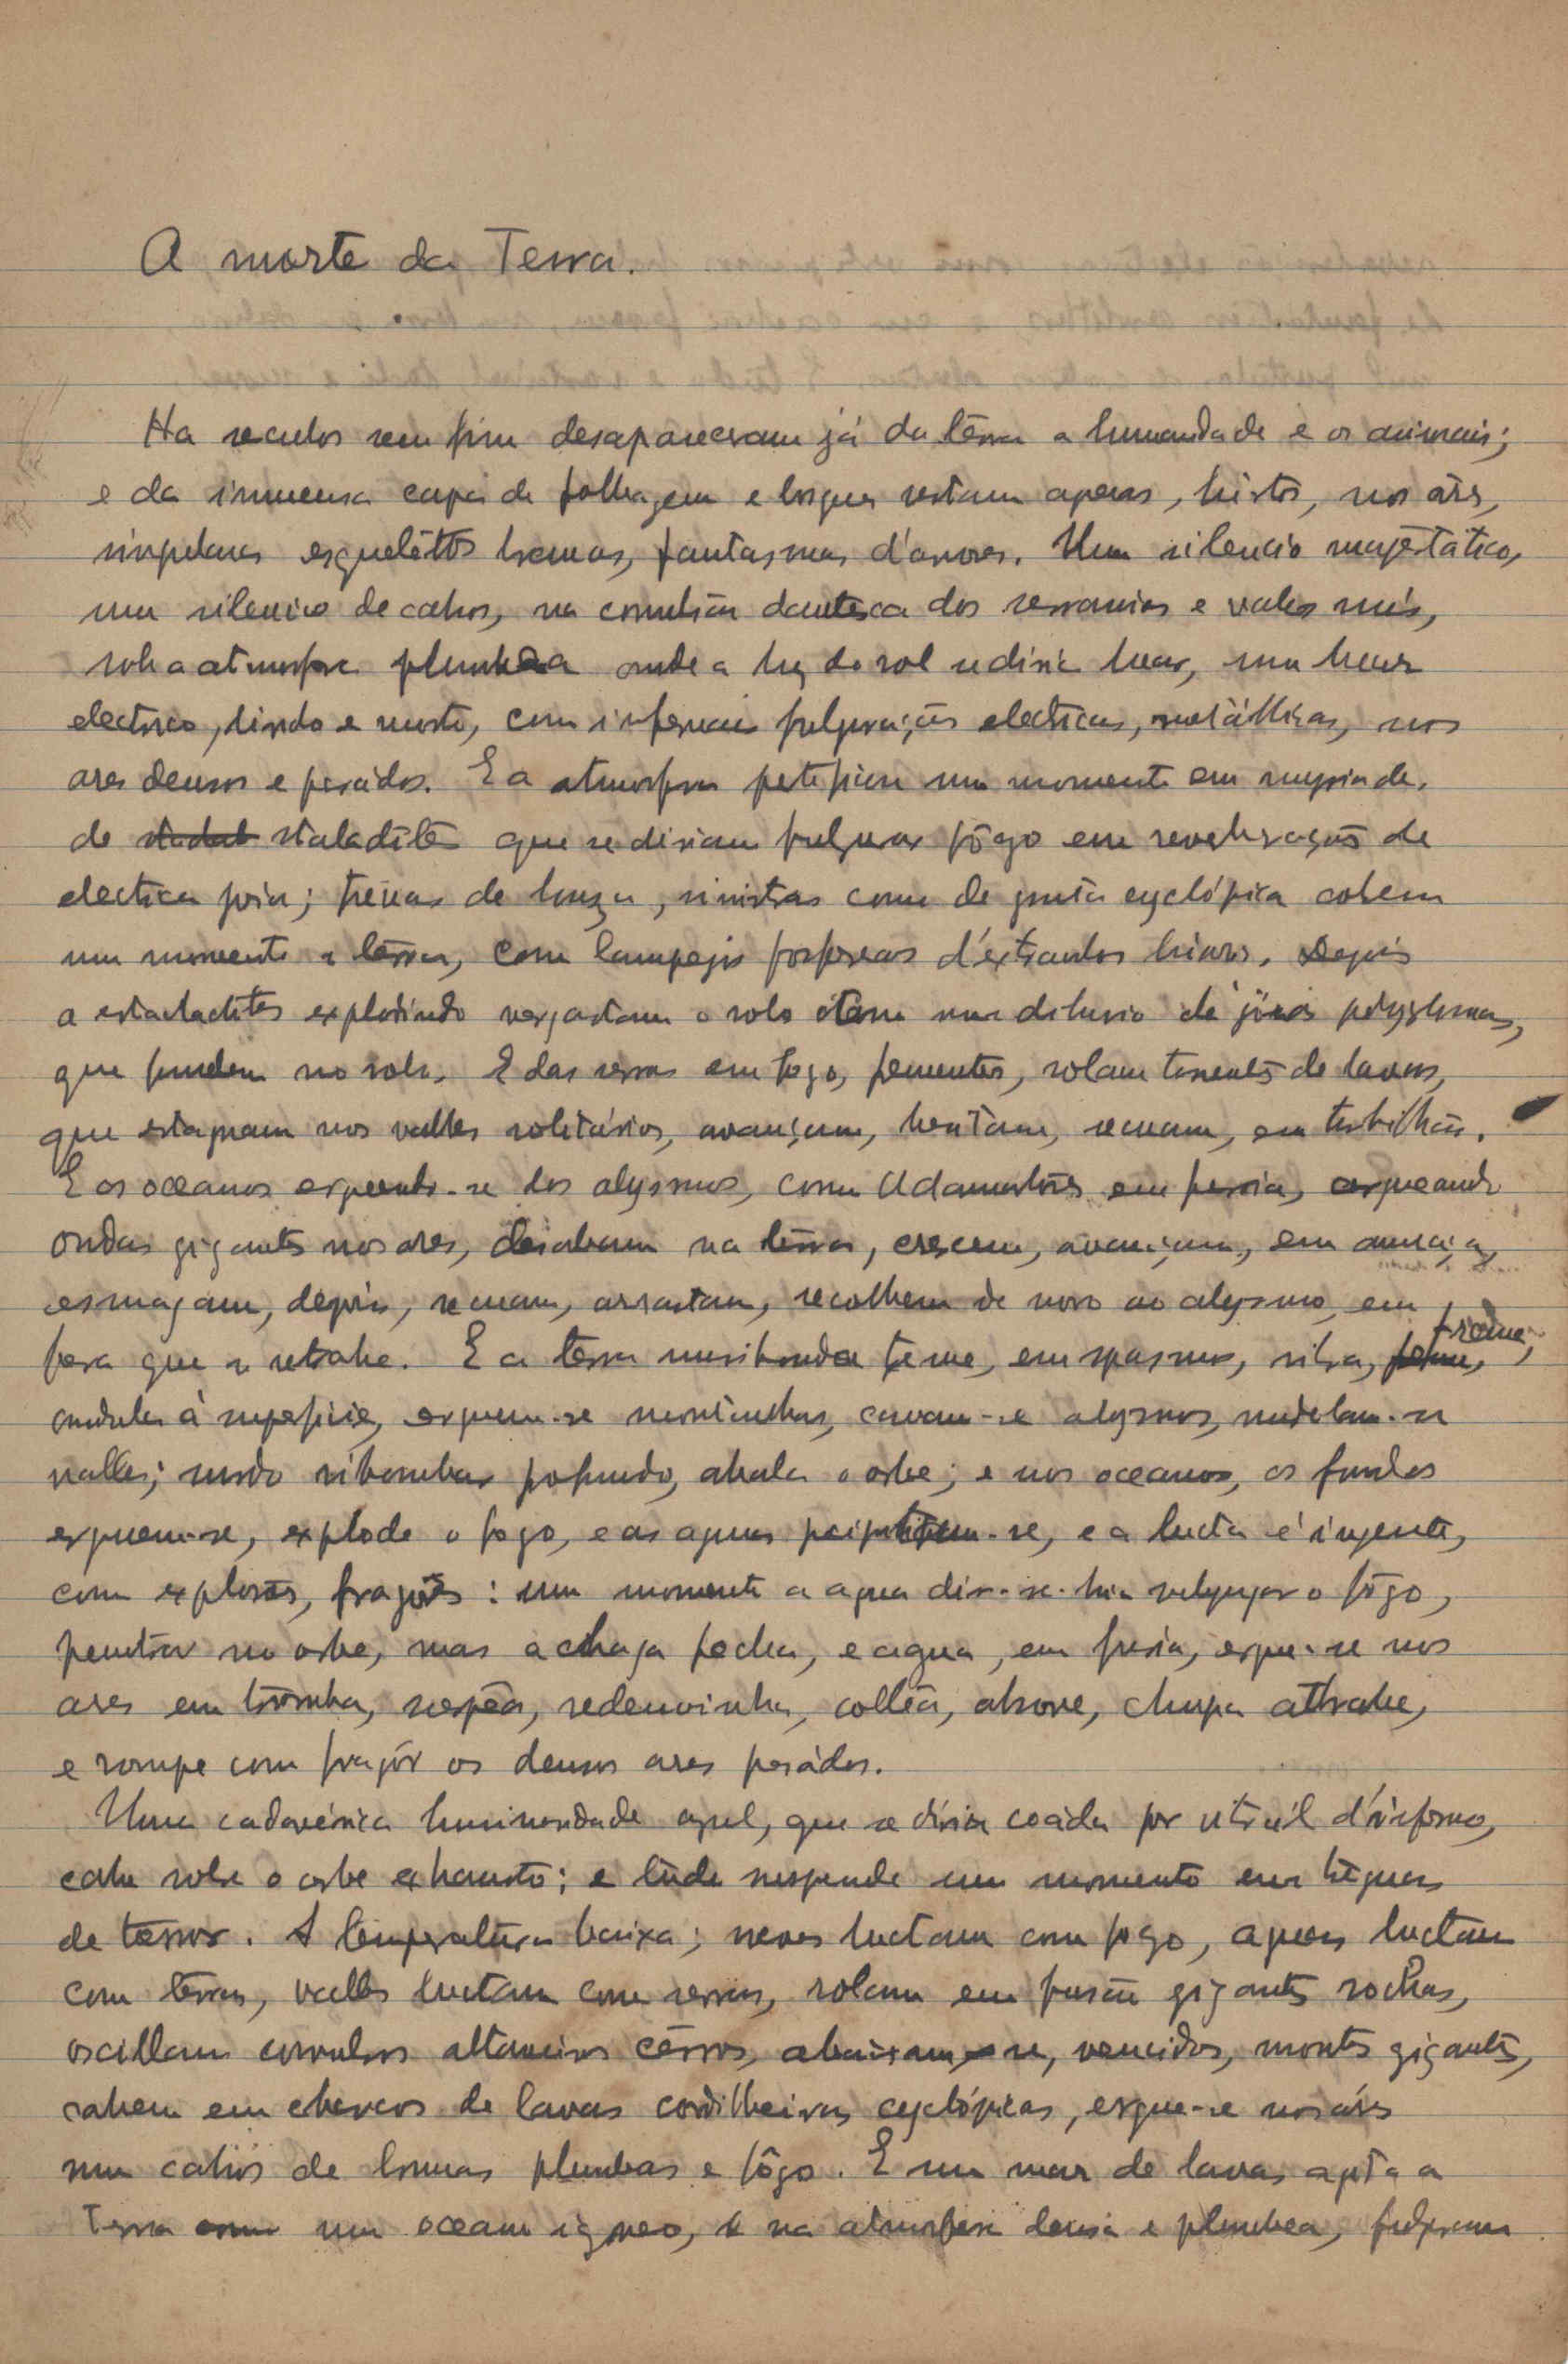 A morte da Terra.
Ha seculos sem fim desapareceram já da térra a humanidade e os animais;
e da immensa capa de folhagem e bosques restam apenas, hirtos, nos áres,
singulares esqueléttos bremas, fantasmas d'arvores. Um silencio majestático,
um silencio de cahos, na convulsão dantesca dos serranias e vales nús,
sob a atmosfera plumbea onde a luz do sol se diria luar, um luar
electrico, livido e morto, com infernais fulgurações electricas, metállicas, nos
ares densos e pesádos. E a atmosfera petrifica um momento em myriade
de stalactites que se diriam fulgurar fôgo em reverberações de
electrica fria; trevas de louza, sinistras como de gruta cyclópica cobrem
um momento a térra, com lampejos fosforeos d'extranhos brilhos. Depois
a estalactites explodindo vergastam o solo num diluvio de joias
que fundem no solo. E das serras em fogo, frementes, rolam torrentes de lavas,
que estagnam nos valles solitários, avançam, hesitam, recuam, em turbilhão.
E os oceanos erguendo-se dos abysmos, como Adamastôres em furia, arqueando
ondas gigantes nos ares, desabam na térra, crescem, avançam, em ameaça,
esmagam, depois, recuam, arrastam, recolhem de novo ao abysmo, em
fera que se retrahe. E a terra moribunda treme, em espasmos, silva, freme,
ondula à superficie, erguem-se montanhas, cavam-se abysmos, modelam-se
valles; surdo ribombar profundo, abala o orbe; e nos oceanos, os fundos
erguem-se, explode o fogo, e as aguas precipitam-se, e a lucta é ingente,
com explosões, fragôres: um momento a agua dir-se-hia subjugar o fôgo,
penetrar no orbe, mas a chaga fecha, e agua, em furia, ergue-se nos
ares em trômba, redemoinha, colléa, absorve, chupa attrahe,
e rompe com fragôr os densos ares pesádos.
Uma cadavérica luminosidade azul, que se diria coáda por vitral d'inferno,
cahe sobre o orbe exhausto; e tudo suspende um momento em tréguas
de terror. A temperatura baixa; neves luctam com fogo, aguas luctam
com terras, valles luctam com serras, rolam em fusão gigantes rochas,
oscillam convulsos altaneiros cérros, abaixam-se, vencidos, montes gigantes,
cahem em charcos de lavas cordilheiras cyclópicas, ergue-se nos áres
um cahos de brumas plumbeas e fôgo. E um mar de lavas agita a
Terra como um oceano igneo, e na atmosfera densa e plumbea, fulguram